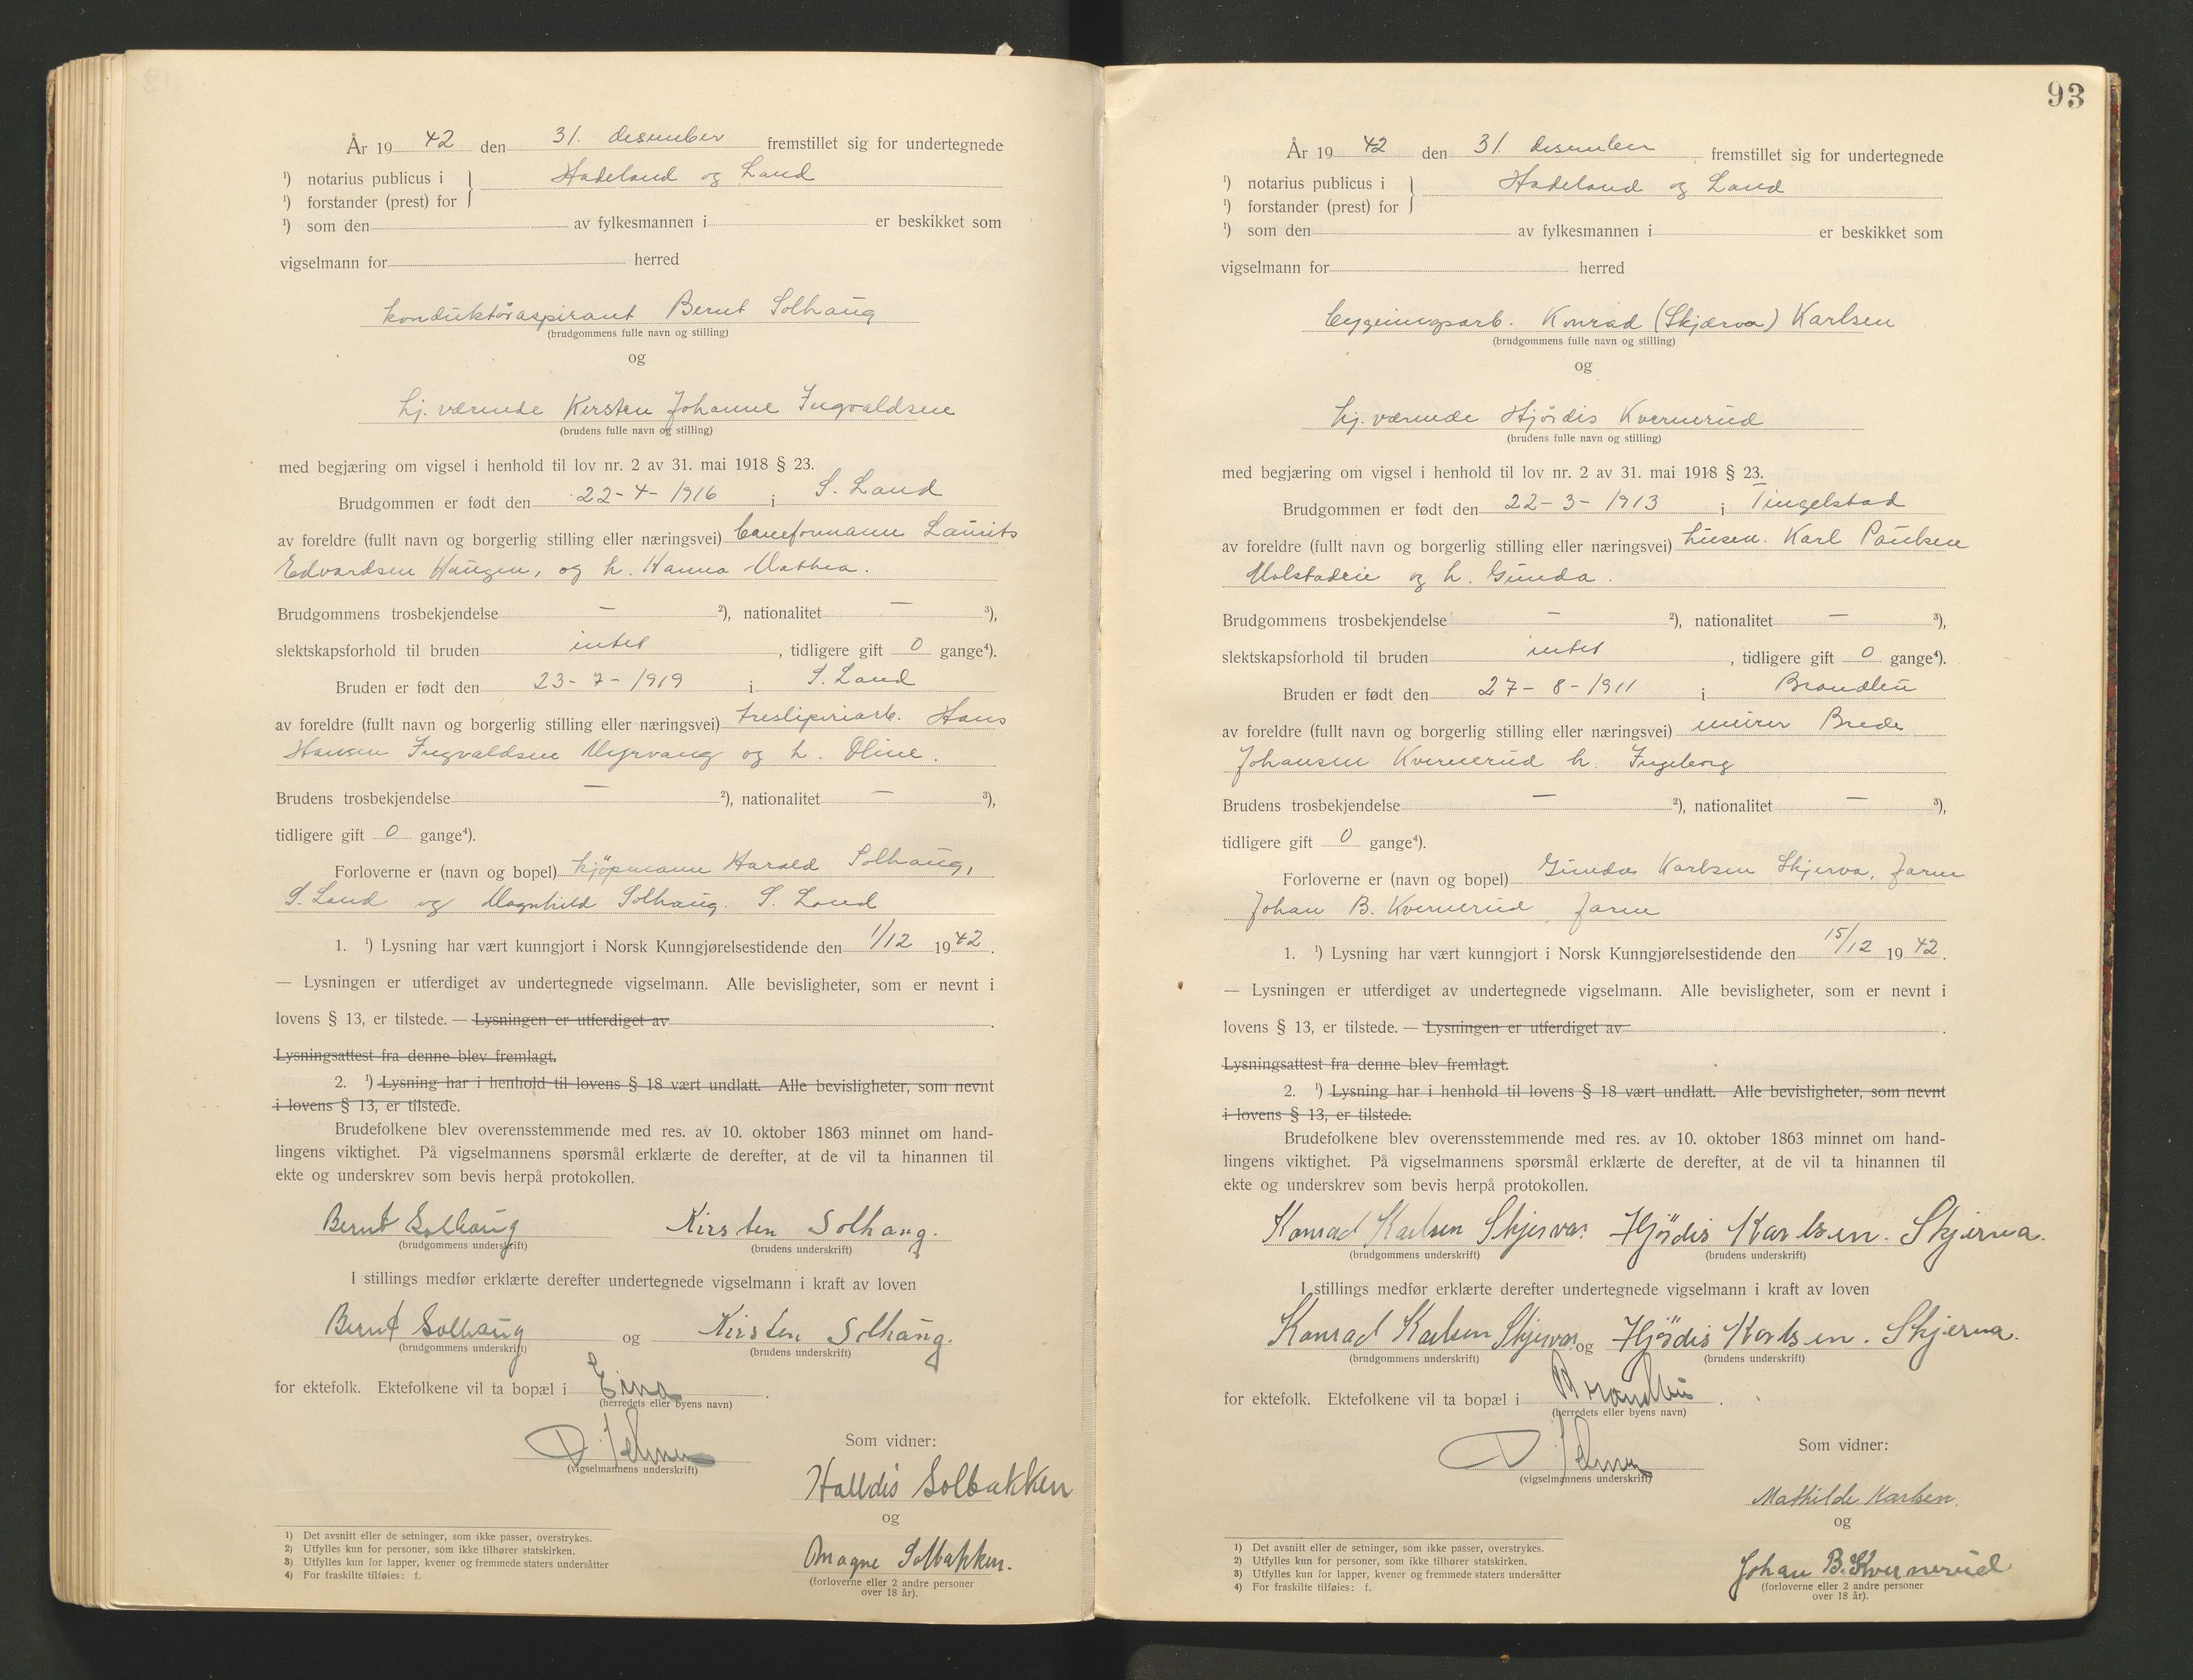 År 19 42 den 31. desember fremstillet sig for undertegnede
¹) notarius publicus i
Hadeland og Land
¹) forstander (prest) for
¹) som den av fylkesmannen i er beskikket som
vigselmann for herred
konduktöraspirant Bernt Solhaug
(brudgommens fulle navn og stilling)
og
hj. værende Kirsten Johanne Ingvaldsen
(brudens fulle navn og stilling)
med begjæring om vigsel i henhold til lov nr. 2 av 31. mai 1918 § 23.
Brudgommen er født den 22-4-1916 i S. Land
av foreldre (fullt navn og borgerlig stilling eller næringsvei) baneformann Laurits
Edvardsen Haugen, og h. Hanna Mathea.
Brudgommens trosbekjendelse — ²), nationalitet — ³),
slektskapsforhold til bruden intet , tidligere gift 0 gange⁴).
Bruden er født den 23-7-1919 i S. Land
av foreldre (fullt navn og borgerlig stilling eller næringsvei) tresliperiarb. Hans
Hansen Ingvaldsen Myrvang og h. Oline.
Brudens trosbekjendelse — ²), nationalitet — ³),
tidligere gift 0 gange⁴).
Forloverne er (navn og bopel) kjöpmann Harald Solhaug,
S. Land og Magnhild Solhaug. S. Land
1. ¹) Lysning har vært kunngjort i Norsk Kunngjørelsestidende den 1/12 19 42.
— Lysningen er utferdiget av undertegnede vigselmann. Alle bevisligheter, som er nevnt i
lovens § 13, er tilstede. — Lysningen er utferdiget av .
Lysningsattest fra denne blev fremlagt.
2. ¹) Lysning har i henhold til lovens § 18 vært undlatt. Alle bevisligheter, som nevnt
i lovens § 13, er tilstede.
Brudefolkene blev overensstemmende med res. av 10. oktober 1863 minnet om hand-
lingens viktighet. På vigselmannens spørsmål erklærte de derefter, at de vil ta hinannen til
ekte og underskrev som bevis herpå protokollen.
Bernt Solhaug Kirsten Solhaug.
(brudgommens underskrift) (brudens underskrift)
I stillings medfør erklærte derefter undertegnede vigselmann i kraft av loven
Bernt Solhaug og Kirsten Solhaug.
(brudgommens underskrift) (brudens underskrift)
for ektefolk. Ektefolkene vil ta bopæl i Eina .
(herredets eller byens navn)
Som vidner:
(vigselmannens underskrift)
Halldis Solbakken
og
Magne Solbakken.
(forloverne eller 2 andre personer
over 18 år).
1) Det avsnitt eller de setninger, som ikke passer, overstrykes.
2) Utfylles kun for personer, som ikke tilhører statskirken.
3) Utfylles kun for lapper, kvener og fremmede staters undersåtter
4) For fraskilte tilføies: f.
93
År 19 42 den 31. desember , fremstillet sig for undertegnede
¹) notarius publicus i
Hadeland og Land
¹) forstander (prest) for
¹) som den av fylkesmannen i er beskikket som
vigselmann for herred
bygningsarb. Konrad (Skjærva) Karlsen
(brudgommens fulle navn og stilling)
og
hj. værende Hjördis Kvernerud
(brudens fulle navn og stilling)
med begjæring om vigsel i henhold til lov nr. 2 av 31. mai 1918 § 23.
Brudgommen er født den 22-3-1913 i Tingelstad
av foreldre (fullt navn og borgerlig stilling eller næringsvei) husm. Karl Paulsen
Molstadeie og h. Gunda.
Brudgommens trosbekjendelse — ²), nationalitet — ³),
slektskapsforhold til bruden intet , tidligere gift 0 gange⁴).
Bruden er født den 27-8-1911 i Brandbu
av foreldre (fullt navn og borgerlig stilling eller næringsvei) murer Brede
Johansen Kvernerud h. Ingeborg
Brudens trosbekjendelse — ²), nationalitet — ³),
tidligere gift 0 gange⁴).
Forloverne er (navn og bopel) Gunda Karlsen Skjerva, Jaren
Johan B. Kvernerud, Jaren
1. ¹) Lysning har vært kunngjort i Norsk Kunngjørelsestidende den 15/12 19 42.
— Lysningen er utferdiget av undertegnede vigselmann. Alle bevisligheter, som er nevnt i
lovens § 13, er tilstede. — Lysningen er utferdiget av .
Lysningsattest fra denne blev fremlagt.
2. ¹) Lysning har i henhold til lovens § 18 vært undlatt. Alle bevisligheter, som nevnt
i lovens § 13, er tilstede.
Brudefolkene blev overensstemmende med res. av 10. oktober 1863 minnet om hand-
lingens viktighet. På vigselmannens spørsmål erklærte de derefter, at de vil ta hinannen til
ekte og underskrev som bevis herpå protokollen.
Konrad Karlsen Skjerva. Hjördis Karlsen. Skjerva.
(brudgommens underskrift) (brudens underskrift)
I stillings medfør erklærte derefter undertegnede vigselmann i kraft av loven
Konrad Karlsen Skjerva. og Hjördis Karlsen. Skjerva.
(brudgommens underskrift) (brudens underskrift)
for ektefolk. Ektefolkene vil ta bopæl i Brandbu .
(herredets eller byens navn)
Som vidner:
(vigselmannens underskrift)
Mathilde Karlsen.
og
Johan B. Kvernerud
(forloverne eller 2 andre personer
over 18 år).
1) Det avsnitt eller de setninger, som ikke passer, overstrykes.
2) Utfylles kun for personer, som ikke tilhører statskirken.
3) Utfylles kun for lapper, kvener og fremmede staters undersåtter
4) For fraskilte tilføies: f.